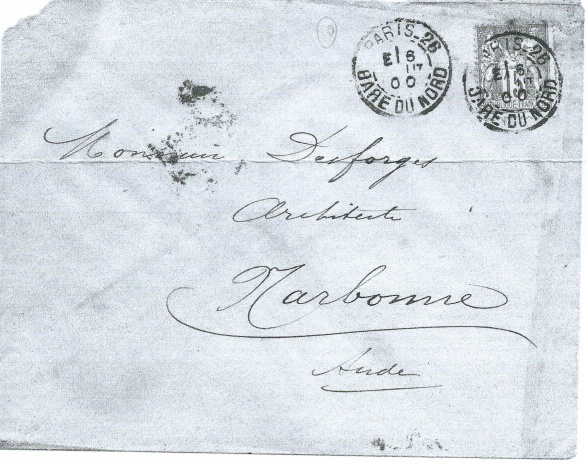 PARIS-26
E 6
00
GARE DU NORD
PARIS-26
E 6
00
GARE DU NORD
15
Monsieur Desforges
Architecte
Narbonne
Aude